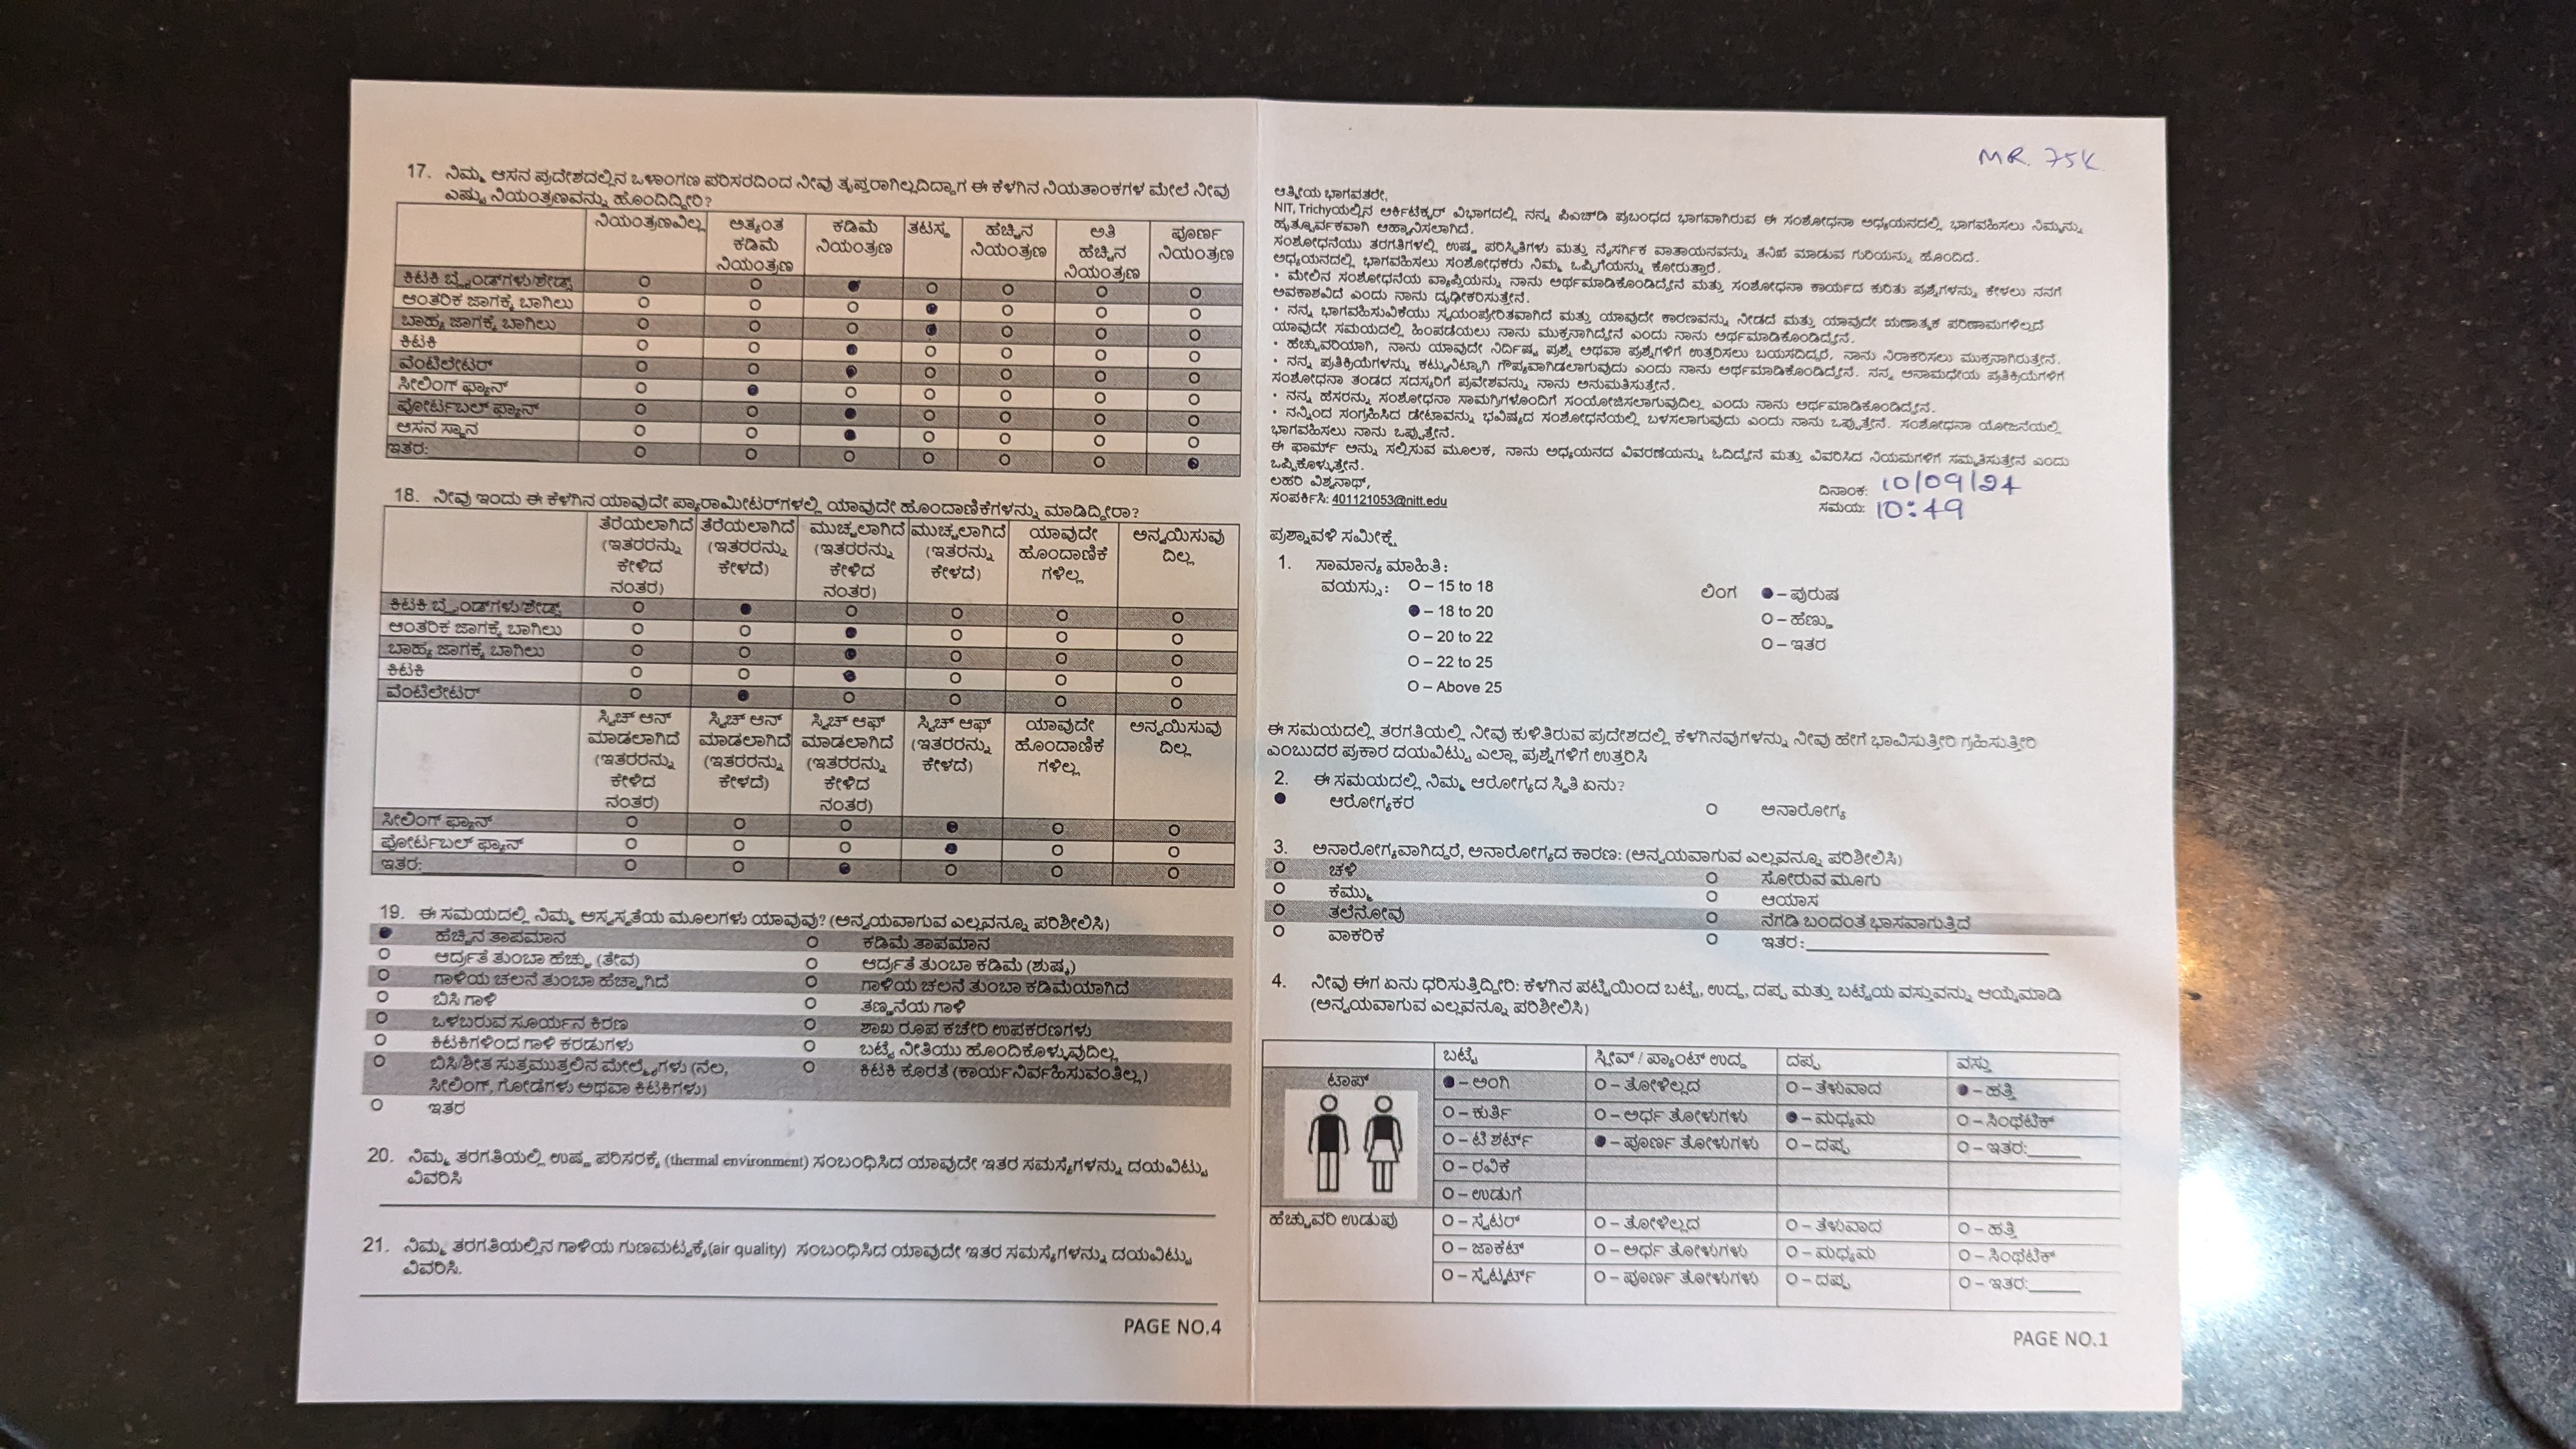 17. ನಿಮ್ಮ ಆಸನ ಪ್ರದೇಶದಲ್ಲಿನ ಒಳಾಂಗಣ ಪರಿಸರದಿಂದ ನೀವು ತೃಪ್ತರಾಗಿಲ್ಲದಿದ್ದಾಗ ಈ ಕೆಳಗಿನ ನಿಯತಾಂಕಗಳ ಮೇಲೆ ನೀವು
ಎಷ್ಟು ನಿಯಂತ್ರಣವನ್ನು ಹೊಂದಿದ್ದೀರಿ?
ನಿಯಂತ್ರಣವಿಲ್ಲ ಅತ್ಯಂತ ಕಡಿಮೆ ನಿಯಂತ್ರಣ ಕಡಿಮೆ ನಿಯಂತ್ರಣ ತಟಸ್ಥ ಹೆಚ್ಚಿನ ನಿಯಂತ್ರಣ ಅತಿ ಹೆಚ್ಚಿನ ನಿಯಂತ್ರಣ ಪೂರ್ಣ ನಿಯಂತ್ರಣ
ಕಿಟಕಿ ಬ್ಲೈಂಡ್‌ಗಳು/ಶೇಡ್ಸ್
ಆಂತರಿಕ ಜಾಗಕ್ಕೆ ಬಾಗಿಲು
ಬಾಹ್ಯ ಜಾಗಕ್ಕೆ ಬಾಗಿಲು
ಕಿಟಕಿ
ವೆಂಟಿಲೇಟರ್
ಸೀಲಿಂಗ್ ಫ್ಯಾನ್
ಪೋರ್ಟಬಲ್ ಫ್ಯಾನ್
ಆಸನ ಸ್ಥಾನ
ಇತರ:
18. ನೀವು ಇಂದು ಈ ಕೆಳಗಿನ ಯಾವುದೇ ಪ್ಯಾರಾಮೀಟರ್‌ಗಳಲ್ಲಿ ಯಾವುದೇ ಹೊಂದಾಣಿಕೆಗಳನ್ನು ಮಾಡಿದ್ದೀರಾ?
ತೆರೆಯಲಾಗಿದೆ (ಇತರರನ್ನು ಕೇಳಿದ ನಂತರ) ತೆರೆಯಲಾಗಿದೆ (ಇತರರನ್ನು ಕೇಳದೆ) ಮುಚ್ಚಲಾಗಿದೆ (ಇತರರನ್ನು ಕೇಳಿದ ನಂತರ) ಮುಚ್ಚಲಾಗಿದೆ (ಇತರರನ್ನು ಕೇಳದೆ) ಯಾವುದೇ ಹೊಂದಾಣಿಕೆ ಗಳಿಲ್ಲ ಅನ್ವಯಿಸುವು ದಿಲ್ಲ
ಕಿಟಕಿ ಬ್ಲೈಂಡ್‌ಗಳು/ಶೇಡ್ಸ್
ಆಂತರಿಕ ಜಾಗಕ್ಕೆ ಬಾಗಿಲು
ಬಾಹ್ಯ ಜಾಗಕ್ಕೆ ಬಾಗಿಲು
ಕಿಟಕಿ
ವೆಂಟಿಲೇಟರ್
ಸ್ವಿಚ್ ಆನ್ ಮಾಡಲಾಗಿದೆ (ಇತರರನ್ನು ಕೇಳಿದ ನಂತರ) ಸ್ವಿಚ್ ಆನ್ ಮಾಡಲಾಗಿದೆ (ಇತರರನ್ನು ಕೇಳದೆ) ಸ್ವಿಚ್ ಆಫ್ ಮಾಡಲಾಗಿದೆ (ಇತರರನ್ನು ಕೇಳಿದ ನಂತರ) ಸ್ವಿಚ್ ಆಫ್ (ಇತರರನ್ನು ಕೇಳದೆ) ಯಾವುದೇ ಹೊಂದಾಣಿಕೆ ಗಳಿಲ್ಲ ಅನ್ವಯಿಸುವು ದಿಲ್ಲ
ಸೀಲಿಂಗ್ ಫ್ಯಾನ್
ಪೋರ್ಟಬಲ್ ಫ್ಯಾನ್
ಇತರ:
19. ಈ ಸಮಯದಲ್ಲಿ ನಿಮ್ಮ ಅಸ್ವಸ್ಥತೆಯ ಮೂಲಗಳು ಯಾವುವು? (ಅನ್ವಯವಾಗುವ ಎಲ್ಲವನ್ನೂ ಪರಿಶೀಲಿಸಿ)
ಹೆಚ್ಚಿನ ತಾಪಮಾನ ಕಡಿಮೆ ತಾಪಮಾನ
ಆರ್ದ್ರತೆ ತುಂಬಾ ಹೆಚ್ಚು (ತೇವ) ಆರ್ದ್ರತೆ ತುಂಬಾ ಕಡಿಮೆ (ಶುಷ್ಕ)
ಗಾಳಿಯ ಚಲನೆ ತುಂಬಾ ಹೆಚ್ಚಾಗಿದೆ ಗಾಳಿಯ ಚಲನೆ ತುಂಬಾ ಕಡಿಮೆಯಾಗಿದೆ
ಬಿಸಿ ಗಾಳಿ ತಣ್ಣನೆಯ ಗಾಳಿ
ಒಳಬರುವ ಸೂರ್ಯನ ಕಿರಣ ಶಾಖ ರೂಪ ಕಚೇರಿ ಉಪಕರಣಗಳು
ಕಿಟಕಿಗಳಿಂದ ಗಾಳಿ ಕರಡುಗಳು ಬಟ್ಟೆ ನೀತಿಯು ಹೊಂದಿಕೊಳ್ಳುವುದಿಲ್ಲ
ಬಿಸಿ/ಶೀತ ಸುತ್ತಮುತ್ತಲಿನ ಮೇಲ್ಮೈಗಳು (ನೆಲ, ಕಿಟಕಿ ಕೊರತೆ (ಕಾರ್ಯನಿರ್ವಹಿಸುವಂತಿಲ್ಲ)
ಸೀಲಿಂಗ್, ಗೋಡೆಗಳು ಅಥವಾ ಕಿಟಕಿಗಳು)
ಇತರ
20. ನಿಮ್ಮ ತರಗತಿಯಲ್ಲಿ ಉಷ್ಣ ಪರಿಸರಕ್ಕೆ (thermal environment) ಸಂಬಂಧಿಸಿದ ಯಾವುದೇ ಇತರ ಸಮಸ್ಯೆಗಳನ್ನು ದಯವಿಟ್ಟು
ವಿವರಿಸಿ
21. ನಿಮ್ಮ ತರಗತಿಯಲ್ಲಿನ ಗಾಳಿಯ ಗುಣಮಟ್ಟಕ್ಕೆ(air quality) ಸಂಬಂಧಿಸಿದ ಯಾವುದೇ ಇತರ ಸಮಸ್ಯೆಗಳನ್ನು ದಯವಿಟ್ಟು
ವಿವರಿಸಿ.
PAGE NO.4
MR. 75K
ಆತ್ಮೀಯ ಭಾಗವತರೇ,
NIT, Trichyಯಲ್ಲಿನ ಆರ್ಕಿಟೆಕ್ಚರ್ ವಿಭಾಗದಲ್ಲಿ ನನ್ನ ಪಿಎಚ್‌ಡಿ ಪ್ರಬಂಧದ ಭಾಗವಾಗಿರುವ ಈ ಸಂಶೋಧನಾ ಅಧ್ಯಯನದಲ್ಲಿ ಭಾಗವಹಿಸಲು ನಿಮ್ಮನ್ನು
ಹೃತ್ಪೂರ್ವಕವಾಗಿ ಆಹ್ವಾನಿಸಲಾಗಿದೆ.
ಸಂಶೋಧನೆಯು ತರಗತಿಗಳಲ್ಲಿ ಉಷ್ಣ ಪರಿಸ್ಥಿತಿಗಳು ಮತ್ತು ನೈಸರ್ಗಿಕ ವಾತಾಯನವನ್ನು ತನಿಖೆ ಮಾಡುವ ಗುರಿಯನ್ನು ಹೊಂದಿದೆ.
ಅಧ್ಯಯನದಲ್ಲಿ ಭಾಗವಹಿಸಲು ಸಂಶೋಧಕರು ನಿಮ್ಮ ಒಪ್ಪಿಗೆಯನ್ನು ಕೋರುತ್ತಾರೆ.
• ಮೇಲಿನ ಸಂಶೋಧನೆಯ ವ್ಯಾಪ್ತಿಯನ್ನು ನಾನು ಅರ್ಥಮಾಡಿಕೊಂಡಿದ್ದೇನೆ ಮತ್ತು ಸಂಶೋಧನಾ ಕಾರ್ಯದ ಕುರಿತು ಪ್ರಶ್ನೆಗಳನ್ನು ಕೇಳಲು ನನಗೆ
ಅವಕಾಶವಿದೆ ಎಂದು ನಾನು ದೃಢೀಕರಿಸುತ್ತೇನೆ.
• ನನ್ನ ಭಾಗವಹಿಸುವಿಕೆಯು ಸ್ವಯಂಪ್ರೇರಿತವಾಗಿದೆ ಮತ್ತು ಯಾವುದೇ ಕಾರಣವನ್ನು ನೀಡದೆ ಮತ್ತು ಯಾವುದೇ ಋಣಾತ್ಮಕ ಪರಿಣಾಮಗಳಿಲ್ಲದೆ
ಯಾವುದೇ ಸಮಯದಲ್ಲಿ ಹಿಂಪಡೆಯಲು ನಾನು ಮುಕ್ತನಾಗಿದ್ದೇನೆ ಎಂದು ನಾನು ಅರ್ಥಮಾಡಿಕೊಂಡಿದ್ದೇನೆ.
• ಹೆಚ್ಚುವರಿಯಾಗಿ, ನಾನು ಯಾವುದೇ ನಿರ್ದಿಷ್ಟ ಪ್ರಶ್ನೆ ಅಥವಾ ಪ್ರಶ್ನೆಗಳಿಗೆ ಉತ್ತರಿಸಲು ಬಯಸದಿದ್ದರೆ, ನಾನು ನಿರಾಕರಿಸಲು ಮುಕ್ತನಾಗಿರುತ್ತೇನೆ.
• ನನ್ನ ಪ್ರತಿಕ್ರಿಯೆಗಳನ್ನು ಕಟ್ಟುನಿಟ್ಟಾಗಿ ಗೌಪ್ಯವಾಗಿಡಲಾಗುವುದು ಎಂದು ನಾನು ಅರ್ಥಮಾಡಿಕೊಂಡಿದ್ದೇನೆ. ನನ್ನ ಅನಾಮಧೇಯ ಪ್ರತಿಕ್ರಿಯೆಗಳಿಗೆ
ಸಂಶೋಧನಾ ತಂಡದ ಸದಸ್ಯರಿಗೆ ಪ್ರವೇಶವನ್ನು ನಾನು ಅನುಮತಿಸುತ್ತೇನೆ.
• ನನ್ನ ಹೆಸರನ್ನು ಸಂಶೋಧನಾ ಸಾಮಗ್ರಿಗಳೊಂದಿಗೆ ಸಂಯೋಜಿಸಲಾಗುವುದಿಲ್ಲ ಎಂದು ನಾನು ಅರ್ಥಮಾಡಿಕೊಂಡಿದ್ದೇನೆ.
• ನನ್ನಿಂದ ಸಂಗ್ರಹಿಸಿದ ಡೇಟಾವನ್ನು ಭವಿಷ್ಯದ ಸಂಶೋಧನೆಯಲ್ಲಿ ಬಳಸಲಾಗುವುದು ಎಂದು ನಾನು ಒಪ್ಪುತ್ತೇನೆ. ಸಂಶೋಧನಾ ಯೋಜನೆಯಲ್ಲಿ
ಭಾಗವಹಿಸಲು ನಾನು ಒಪ್ಪುತ್ತೇನೆ.
ಈ ಫಾರ್ಮ್ ಅನ್ನು ಸಲ್ಲಿಸುವ ಮೂಲಕ, ನಾನು ಅಧ್ಯಯನದ ವಿವರಣೆಯನ್ನು ಓದಿದ್ದೇನೆ ಮತ್ತು ವಿವರಿಸಿದ ನಿಯಮಗಳಿಗೆ ಸಮ್ಮತಿಸುತ್ತೇನೆ ಎಂದು
ಒಪ್ಪಿಕೊಳ್ಳುತ್ತೇನೆ.
ಲಹರಿ ವಿಶ್ವನಾಥ್,
ಸಂಪರ್ಕಿಸಿ: 401121053@nitt.edu
ದಿನಾಂಕ: 10/09/24
ಸಮಯ: 10:49
ಪ್ರಶ್ನಾವಳಿ ಸಮೀಕ್ಷೆ
1. ಸಾಮಾನ್ಯ ಮಾಹಿತಿ:
ವಯಸ್ಸು: – 15 to 18 ಲಿಂಗ – ಪುರುಷ
– 18 to 20 – ಹೆಣ್ಣು
– 20 to 22 – ಇತರ
– 22 to 25
– Above 25
ಈ ಸಮಯದಲ್ಲಿ ತರಗತಿಯಲ್ಲಿ ನೀವು ಕುಳಿತಿರುವ ಪ್ರದೇಶದಲ್ಲಿ ಕೆಳಗಿನವುಗಳನ್ನು ನೀವು ಹೇಗೆ ಭಾವಿಸುತ್ತೀರಿ ಗ್ರಹಿಸುತ್ತೀರಿ
ಎಂಬುದರ ಪ್ರಕಾರ ದಯವಿಟ್ಟು ಎಲ್ಲಾ ಪ್ರಶ್ನೆಗಳಿಗೆ ಉತ್ತರಿಸಿ
2. ಈ ಸಮಯದಲ್ಲಿ ನಿಮ್ಮ ಆರೋಗ್ಯದ ಸ್ಥಿತಿ ಏನು?
ಆರೋಗ್ಯಕರ ಅನಾರೋಗ್ಯ
3. ಅನಾರೋಗ್ಯವಾಗಿದ್ದರೆ, ಅನಾರೋಗ್ಯದ ಕಾರಣ: (ಅನ್ವಯವಾಗುವ ಎಲ್ಲವನ್ನೂ ಪರಿಶೀಲಿಸಿ)
ಚಳಿ ಸೋರುವ ಮೂಗು
ಕೆಮ್ಮು ಆಯಾಸ
ತಲೆನೋವು ನೆಗಡಿ ಬಂದಂತೆ ಭಾಸವಾಗುತ್ತಿದೆ
ವಾಕರಿಕೆ ಇತರ:
4. ನೀವು ಈಗ ಏನು ಧರಿಸುತ್ತಿದ್ದೀರಿ: ಕೆಳಗಿನ ಪಟ್ಟಿಯಿಂದ ಬಟ್ಟೆ, ಉದ್ದ, ದಪ್ಪ ಮತ್ತು ಬಟ್ಟೆಯ ವಸ್ತುವನ್ನು ಆಯ್ಕೆಮಾಡಿ
(ಅನ್ವಯವಾಗುವ ಎಲ್ಲವನ್ನೂ ಪರಿಶೀಲಿಸಿ)
ಬಟ್ಟೆ ಸ್ಲೀವ್ / ಪ್ಯಾಂಟ್ ಉದ್ದ ದಪ್ಪ ವಸ್ತು
ಟಾಪ್ – ಅಂಗಿ – ತೋಳಿಲ್ಲದ – ತೆಳುವಾದ – ಹತ್ತಿ
– ಕುರ್ತಿ – ಅರ್ಧ ತೋಳುಗಳು – ಮಧ್ಯಮ – ಸಿಂಥೆಟಿಕ್
– ಟಿ ಶರ್ಟ್ – ಪೂರ್ಣ ತೋಳುಗಳು – ದಪ್ಪ – ಇತರ:
– ರವಿಕೆ
– ಉಡುಗೆ
ಹೆಚ್ಚುವರಿ ಉಡುಪು – ಸ್ವೆಟರ್ – ತೋಳಿಲ್ಲದ – ತೆಳುವಾದ – ಹತ್ತಿ
– ಜಾಕೆಟ್ – ಅರ್ಧ ತೋಳುಗಳು – ಮಧ್ಯಮ – ಸಿಂಥೆಟಿಕ್
– ಸ್ವೆಟ್ಶರ್ಟ್ – ಪೂರ್ಣ ತೋಳುಗಳು – ದಪ್ಪ – ಇತರ:
PAGE NO.1